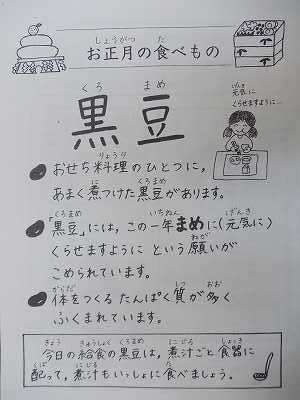 お正月の食べもの
しょうがつ た
元気に
げんき
くらせますように…
黒豆
くろ まめ
おせち料理のひとつに、
りょうり
あまく煮つけた黒豆があります。
に くろまめ
「黒豆」には、この一年まめに(元気に)
くろまめ いちねん げんき
くらせますように という願いが
ねが
こめられています。
体をつくる たんぱく質が多く
からだ しつ おお
ふくまれています。
今日の給食の黒豆は、煮汁ごと食器に
きょう きゅうしょく くろまめ にじる しょっき
配って、煮汁もいっしょに食べましょう。
くば にじる た